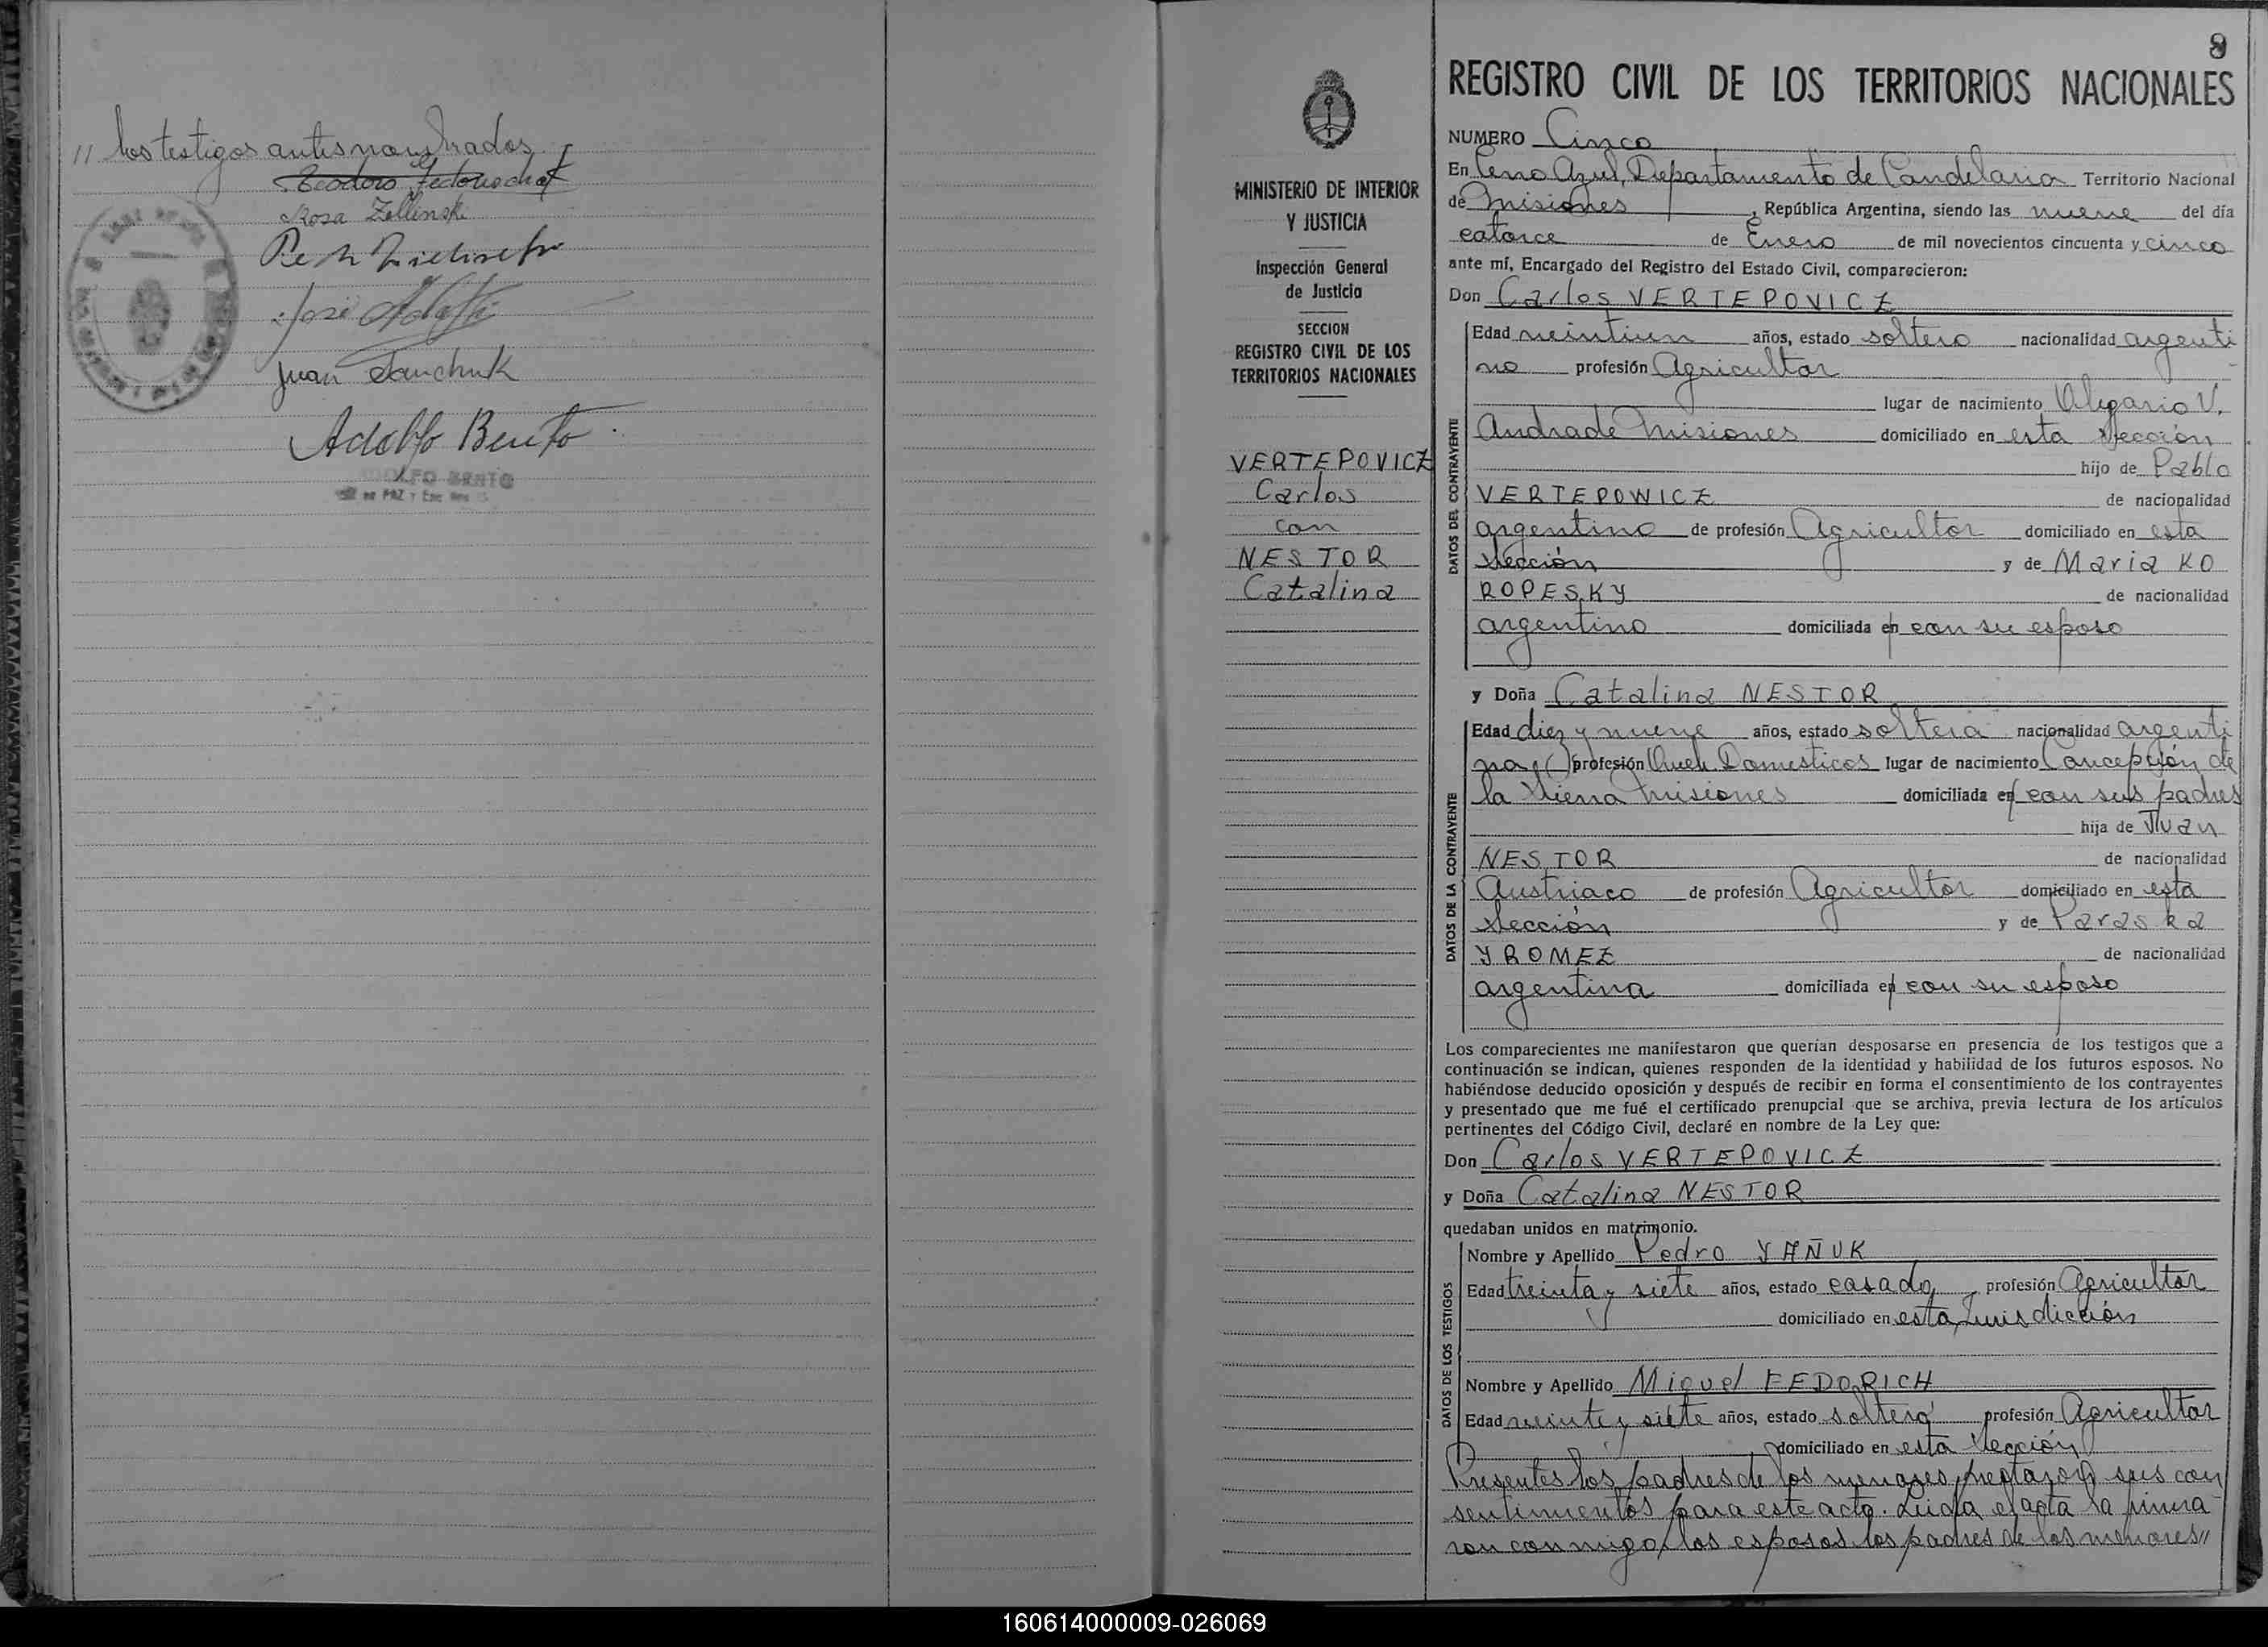 // los testigos antes nombrados
Rosa Zellinski
José
Juan Sanchuk
Adolfo Bento
ADOLFO BENTO
8
REGISTRO CIVIL DE LOS TERRITORIOS NACIONALES
MINISTERIO DE INTERIOR
Y JUSTICIA
Inspección General
de Justicia
SECCION
REGISTRO CIVIL DE LOS
TERRITORIOS NACIONALES
VERTEPOVICZ
Carlos
con
NESTOR
Catalina
NUMERO Cinco
En Cerro Azul, Departamento de Candelaria Territorio Nacional
de Misiones, República Argentina, siendo las nueve del día
catorce de Enero de mil novecientos cincuenta y cinco
ante mí, Encargado del Registro del Estado Civil, comparecieron:
Don Carlos VERTEPOVICZ
DATOS DEL CONTRAYENTE
Edad veintiun años, estado soltero nacionalidad argenti
no profesión Agricultor
lugar de nacimiento Olegario V.
Andrade Misiones domiciliado en esta Sección
hijo de Pablo
VERTEPOWICZ de nacionalidad
argentino de profesión Agricultor domiciliado en esta
Sección y de Maria KO
ROPESKY de nacionalidad
argentino domiciliada en con su esposo
y Doña Catalina NESTOR
DATOS DE LA CONTRAYENTE
Edad diez y nueve años, estado soltera nacionalidad argenti
na profesión Queh. Domesticos lugar de nacimiento Concepción de
la Sierra Misiones domiciliada en con sus padres
hija de Juan
NESTOR de nacionalidad
Austriaco de profesión Agricultor domiciliado en esta
Sección y de Paraska
YROMEZ de nacionalidad
argentina domiciliada en con su esposo
Los comparecientes me manifestaron que querían desposarse en presencia de los testigos que a
continuación se indican, quienes responden de la identidad y habilidad de los futuros esposos. No
habiéndose deducido oposición y después de recibir en forma el consentimiento de los contrayentes
y presentado que me fué el certificado prenupcial que se archiva, previa lectura de los artículos
pertinentes del Código Civil, declaré en nombre de la Ley que:
Don Carlos VERTEPOVICZ
y Doña Catalina NESTOR
quedaban unidos en matrimonio.
DATOS DE LOS TESTIGOS
Nombre y Apellido Pedro YAÑUK
Edad treinta y siete años, estado casado profesión Agricultor
domiciliado en esta Jurisdicción
Nombre y Apellido Miguel FEDORICH
Edad veinte y siete años, estado soltero profesión Agricultor
domiciliado en esta Sección
Presentes los padres de los menores, prestaron sus con
sentimientos para este acto. Leida el acta la firma
ron conmigo, los esposos los padres de los menores //
160614000009-026069